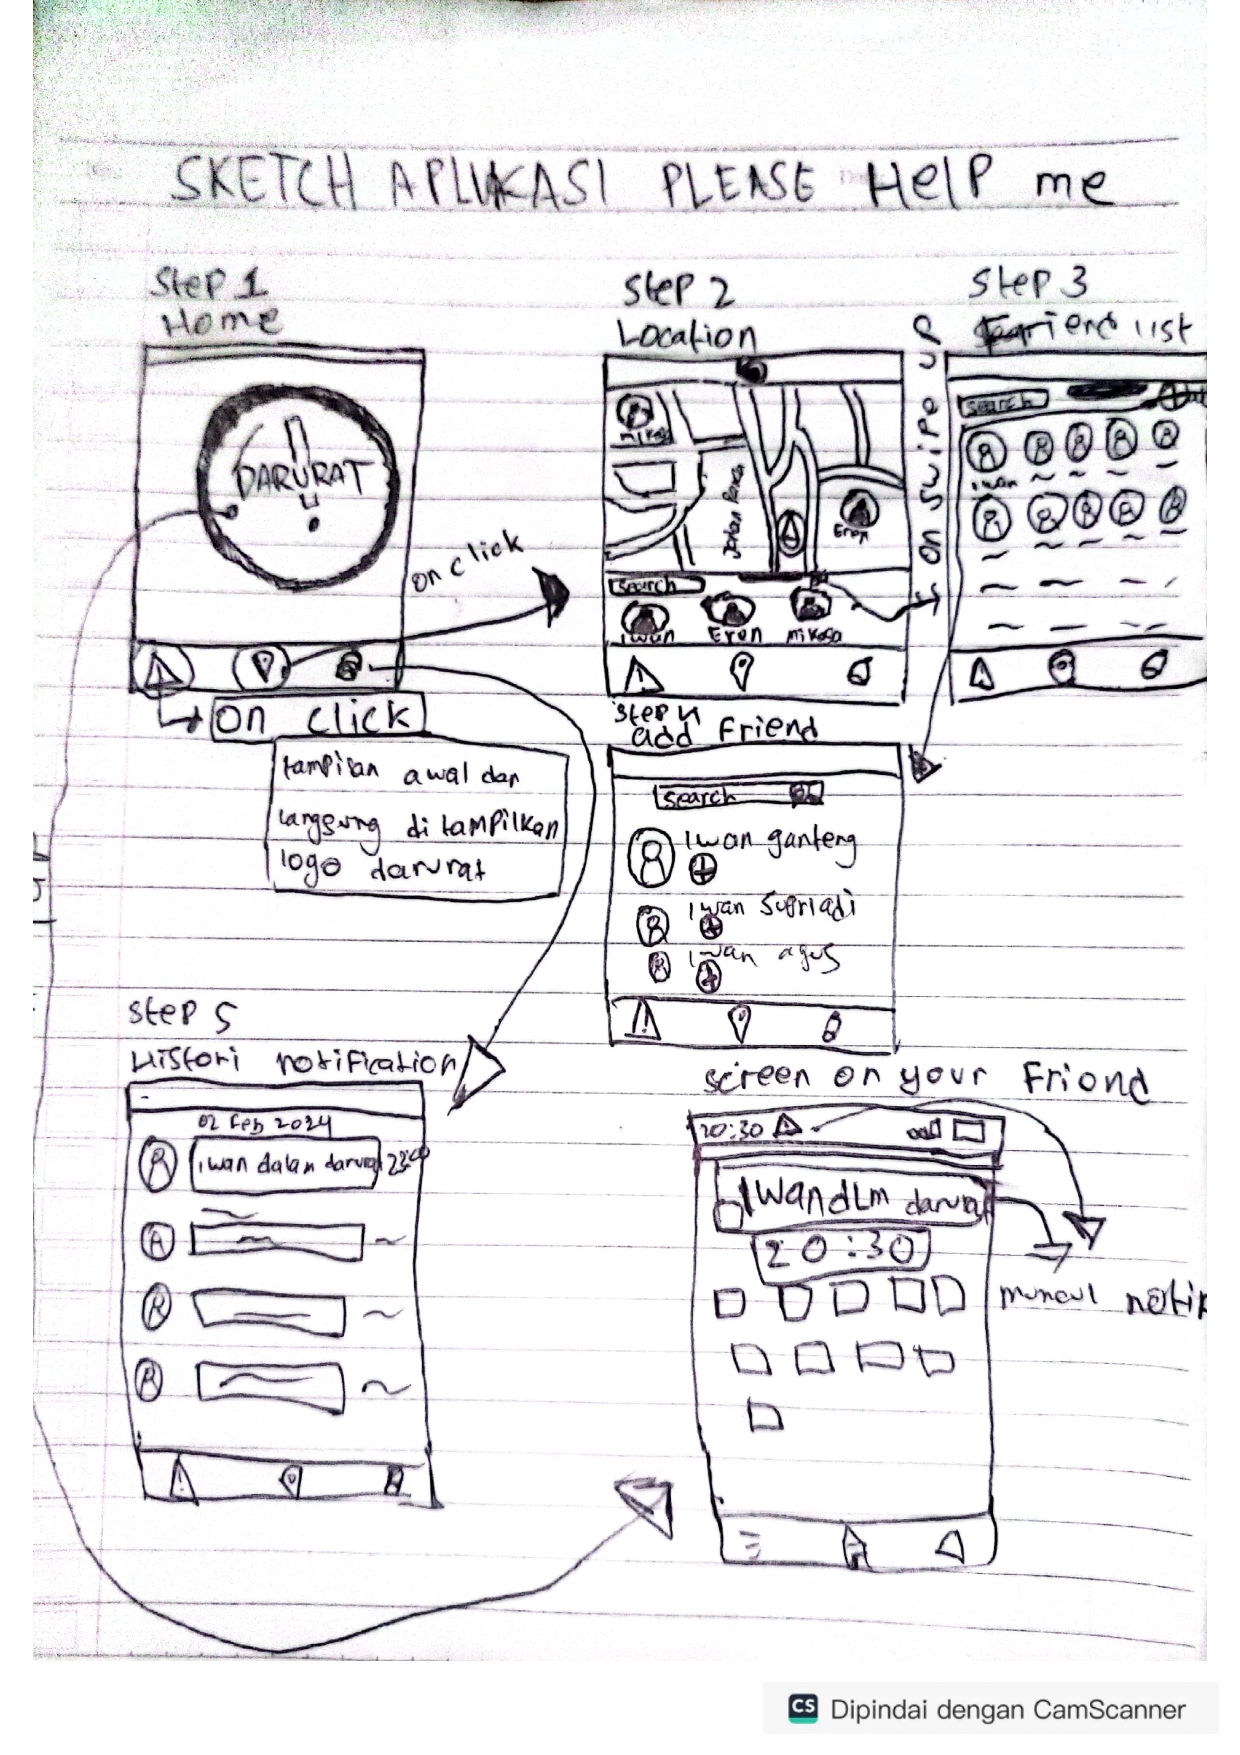 SKETCH APLIKASI PLEASE HelP me
Step 1
Home
DARURAT
on click
on click
tampilan awal dan
langsung di tampilkan
logo darurat
Step 2
Location
mikasa
Jalan
Eren
search
iwan Eren mikasa
on Swipe up
Step 3
friend list
search
iwan
Step 4
add Friend
search
Iwan ganteng
Iwan Supriadi
Iwan agus
Step 5
Histori notification
02 Feb 2024
iwan dalam darurat
screen on your Friend
20:30
Iwan dLm darurat
20:30
muncul notif
CS Dipindai dengan CamScanner